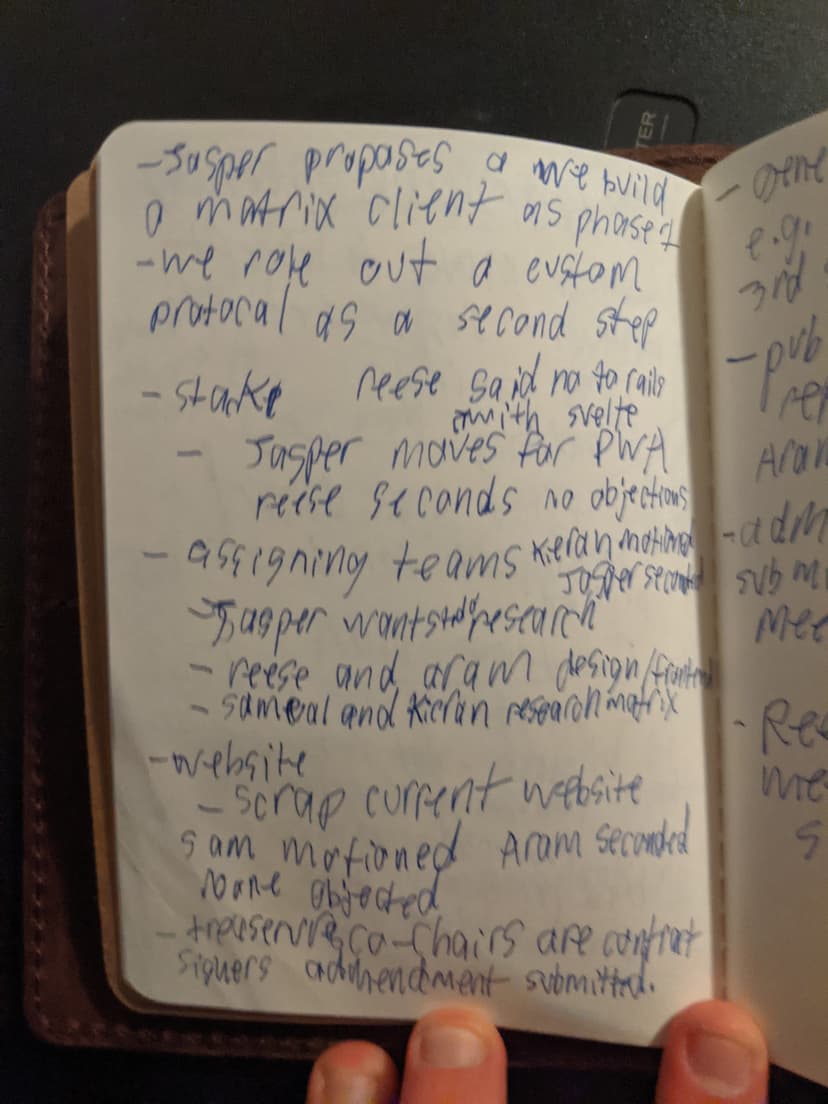 -Jasper propases a we build
a matrix client as phase 1
-we role out a custom
protocal as a second step
- stake reese said no to rails
with svelte
- Jasper moves for PWA
reese seconds no objections
- assigning teams Kieran motioned
Jasper seconded
-Jasper wants to research
- reese and aram design/frontend
- sameal and Kieran research matrix
-website
- scrap current website
sam motioned Aram seconded
none objected
- co-chairs are contract
signers submitted.
- 
e.g.
3rd
-pub
rep
Aram
-adm
sub m
Mee
- Ree
me
s
TER